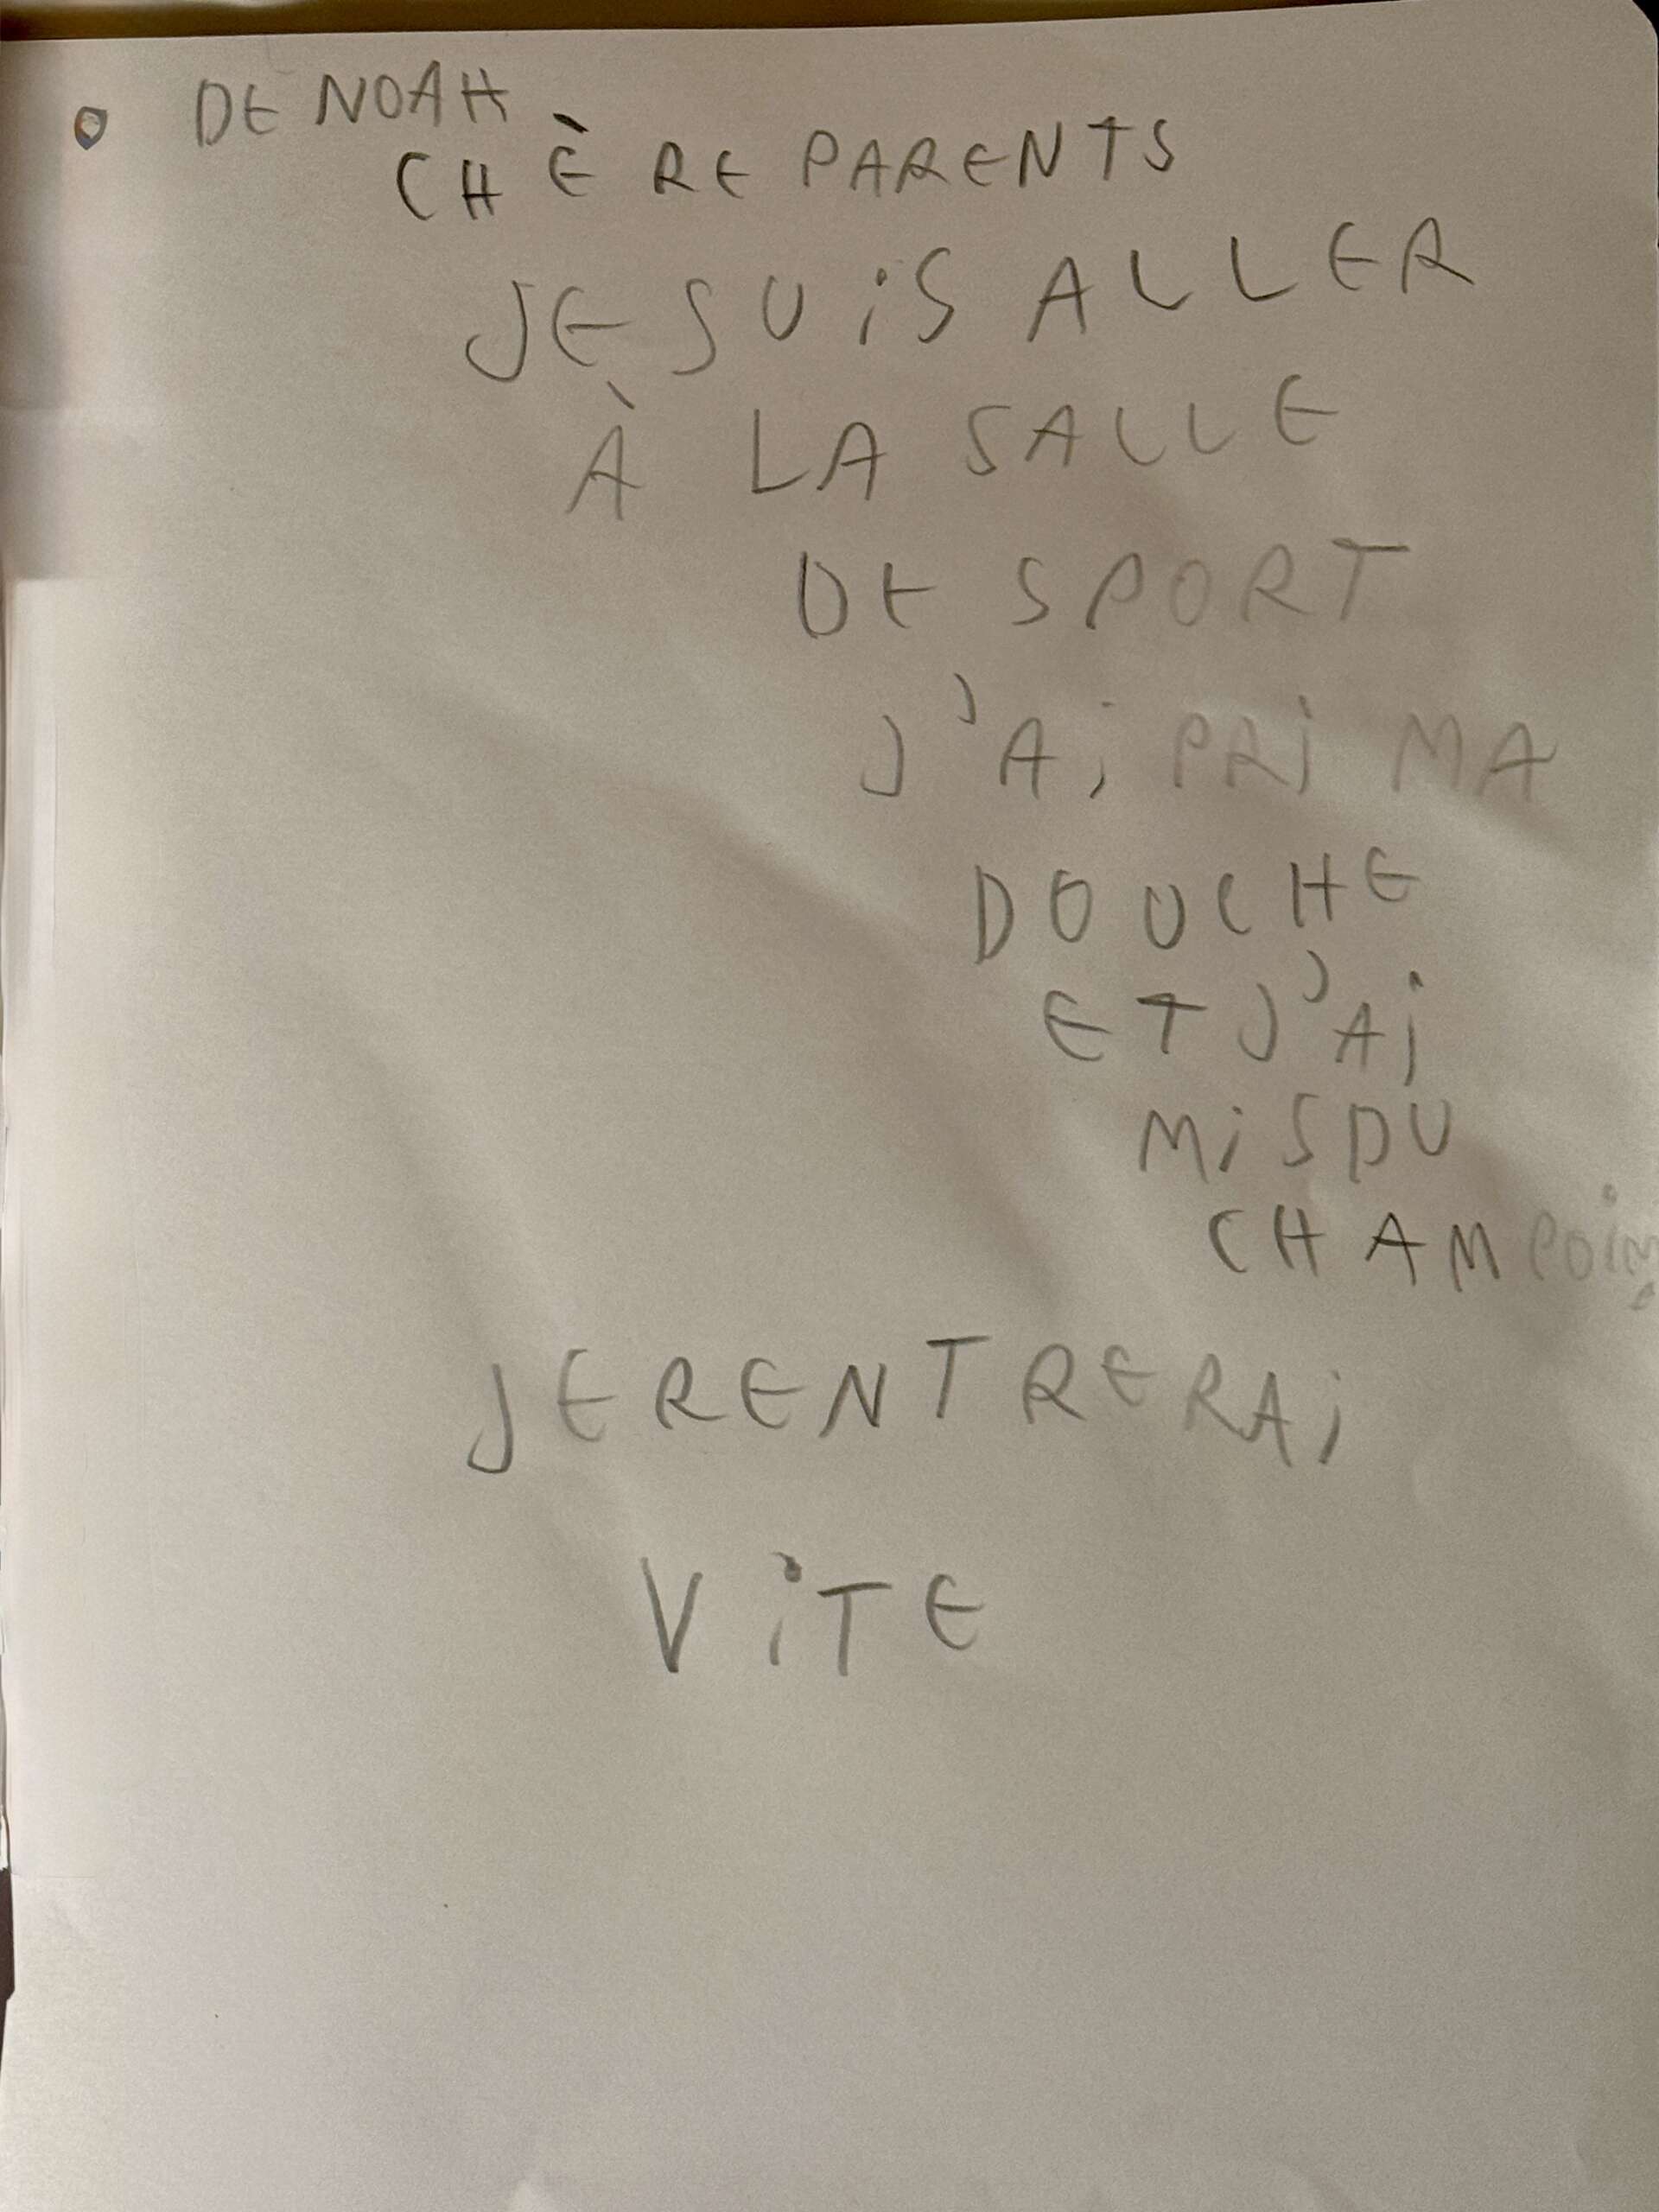 DE NOAH
CHÈRE PARENTS
JE SUiS ALLER
À LA SALLE
DE SPORT
J'Ai PRi MA
DOUCHE
ET J'Ai
MiS DU
JE RENTRERAi
ViTE